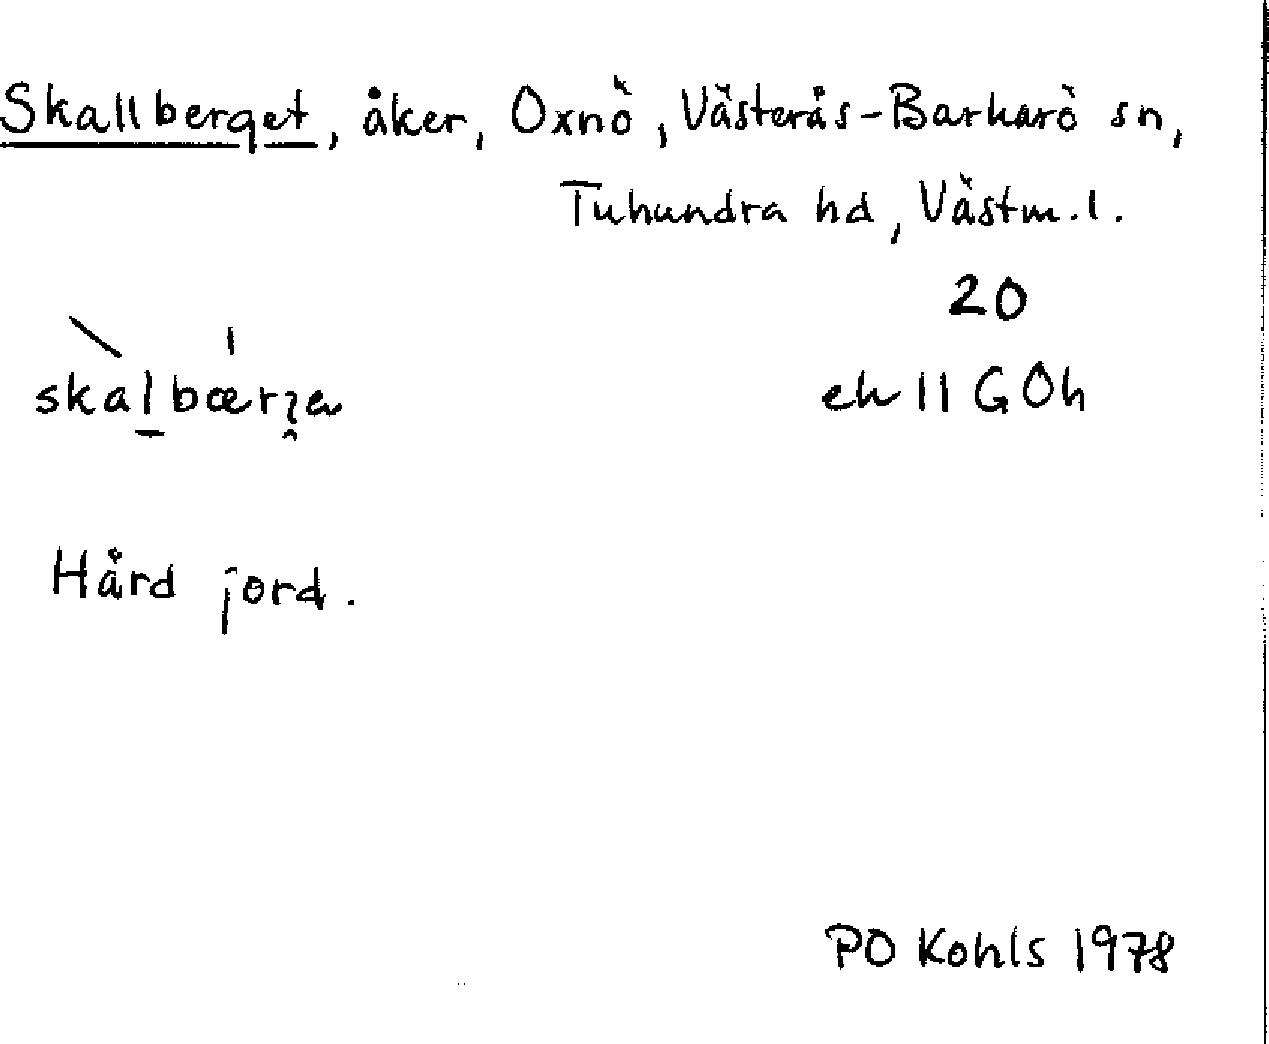 Skallberget, åker, Oxnö, Västerås-Barkarö sn,
Tuhundra hd, Västm.l.
20
skalbærja
ek 11 GÖh
Hård jord.
PO Kohls 1978